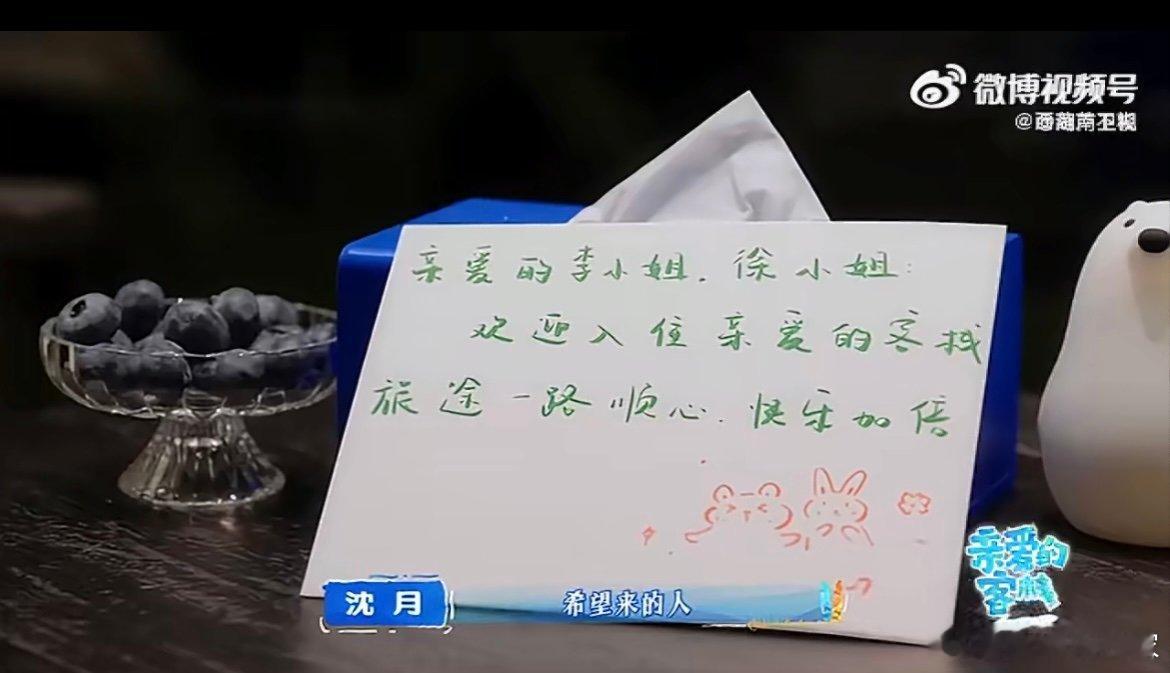 微博视频号
亲爱的李小姐，徐小姐：
欢迎入住亲爱的客栈
旅途一路顺心，快乐加倍
亲爱的
客栈
沈月
希望来的人